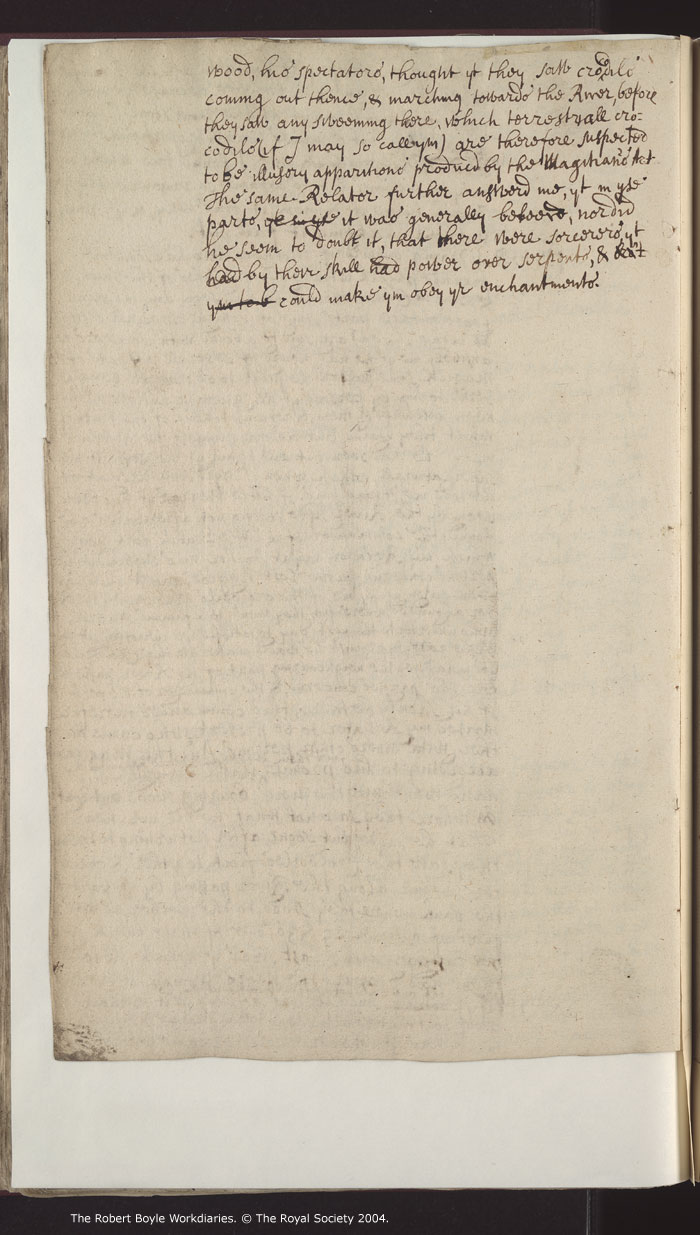 wood, his spectators, thought yt they saw crodils
coming out thence, & marching towards the River, before
they saw any sweeming there, which terrestryall cro-
codils (if I may so call ym) are therefore suspected
to be illusory apparitions produc'd by the Magitians Art
The same Relator further answerd me, yt in yse
parts, it was generally beleevd, nor did
he seem to doubt it, that there were sorcerers, yt
had by their skill had power over serpents, &
could make ym obey yr enchantments.
The Robert Boyle Workdiaries. © The Royal Society 2004.